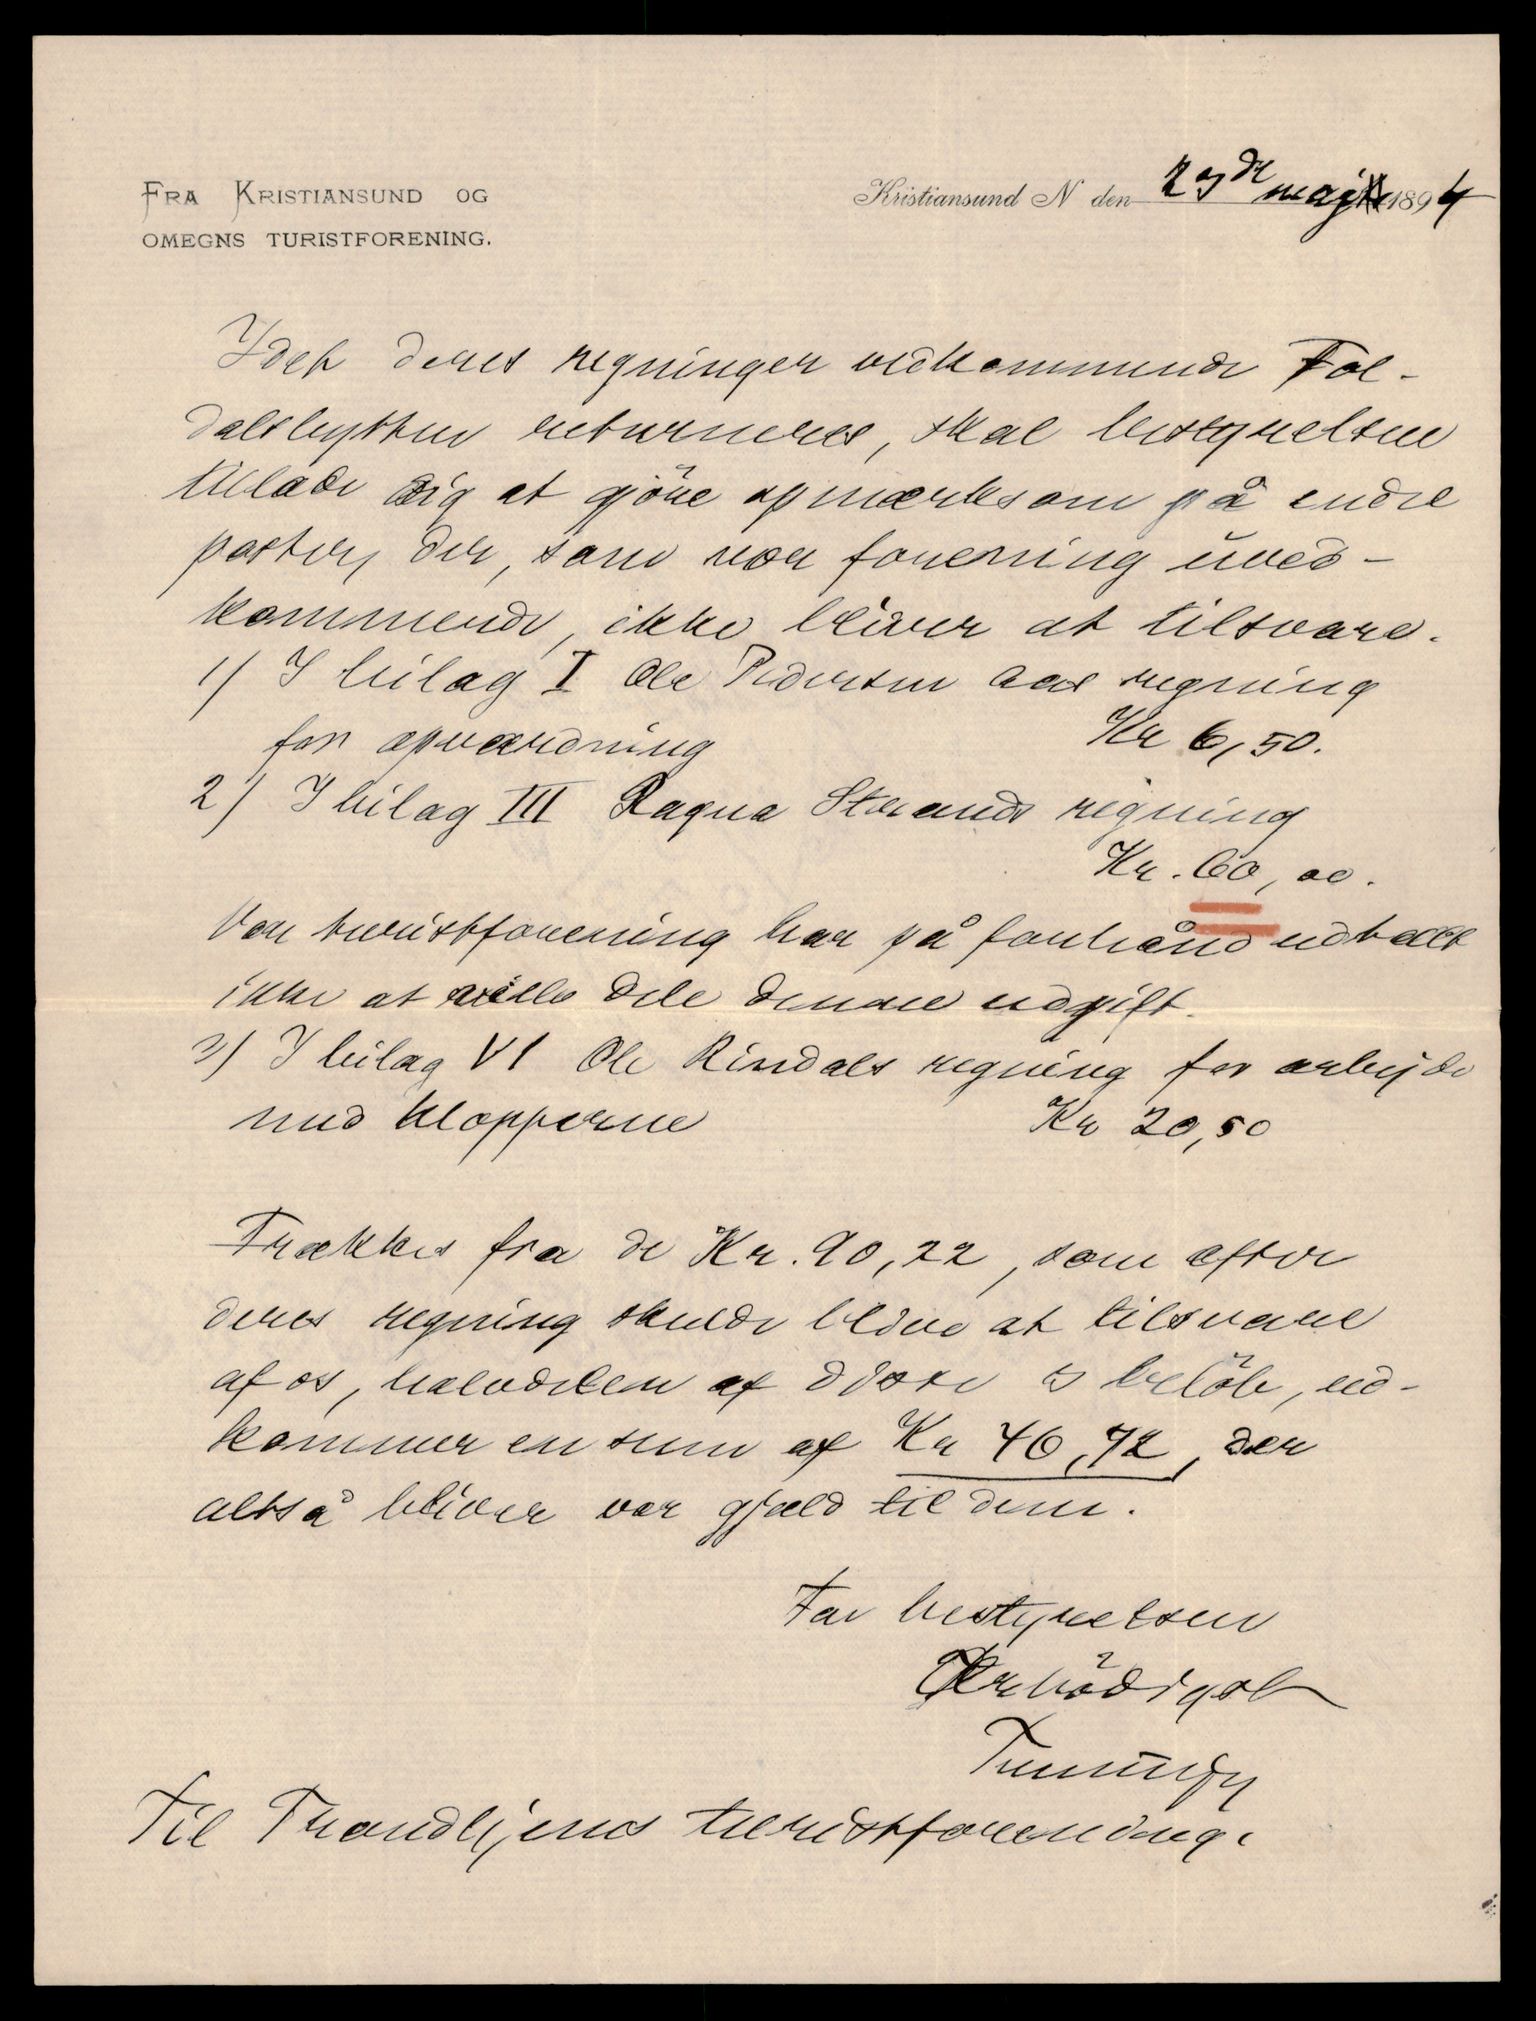 FRA KRISTIANSUND OG
OMEGNS TURISTFORENING.
Kristiansund N den 23de maj 1894
Idet deres regninger vedkommende Fol-
dalshytten returneres, skal bestyrelsen
tillade sig at gjöre opmærksom på endel
poster, der, som vor forening uved-
kommende, ikke bliver at tilsvare.
1) I bilag I Ole Pedersen Aas regning
for opvardning Kr 6,50.
2) I bilag III Ragna Strands regning
Kr. 60,00.
Vor turistforening har på forhånd udtalt
ikke at ville dele denne udgift.
3) I bilag VI Ole Rindals regning for arbejde
med klopperne Kr 20,50
Trækkes fra de Kr. 90,22, som efter
deres regning skulde blive at tilsvare
af os, halvdelen af disse 3 beløb, ud-
kommer en sum af Kr 46,72, der
altså bliver vor gjæld til dem.
For bestyrelsen
Ærbödigst
Til Trondhjems turistforening.